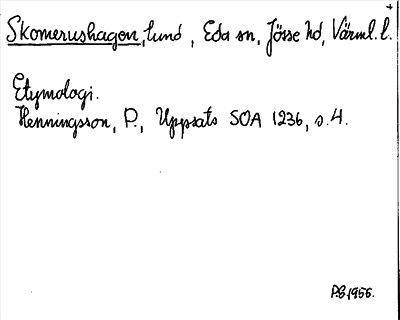 Skomerushagen, lund, Eda sn, Jösse hd, Värml. l.
Etymologi.
Henningsson, P., Uppsats SOA 1236, s. 4.
P.G. 1956.